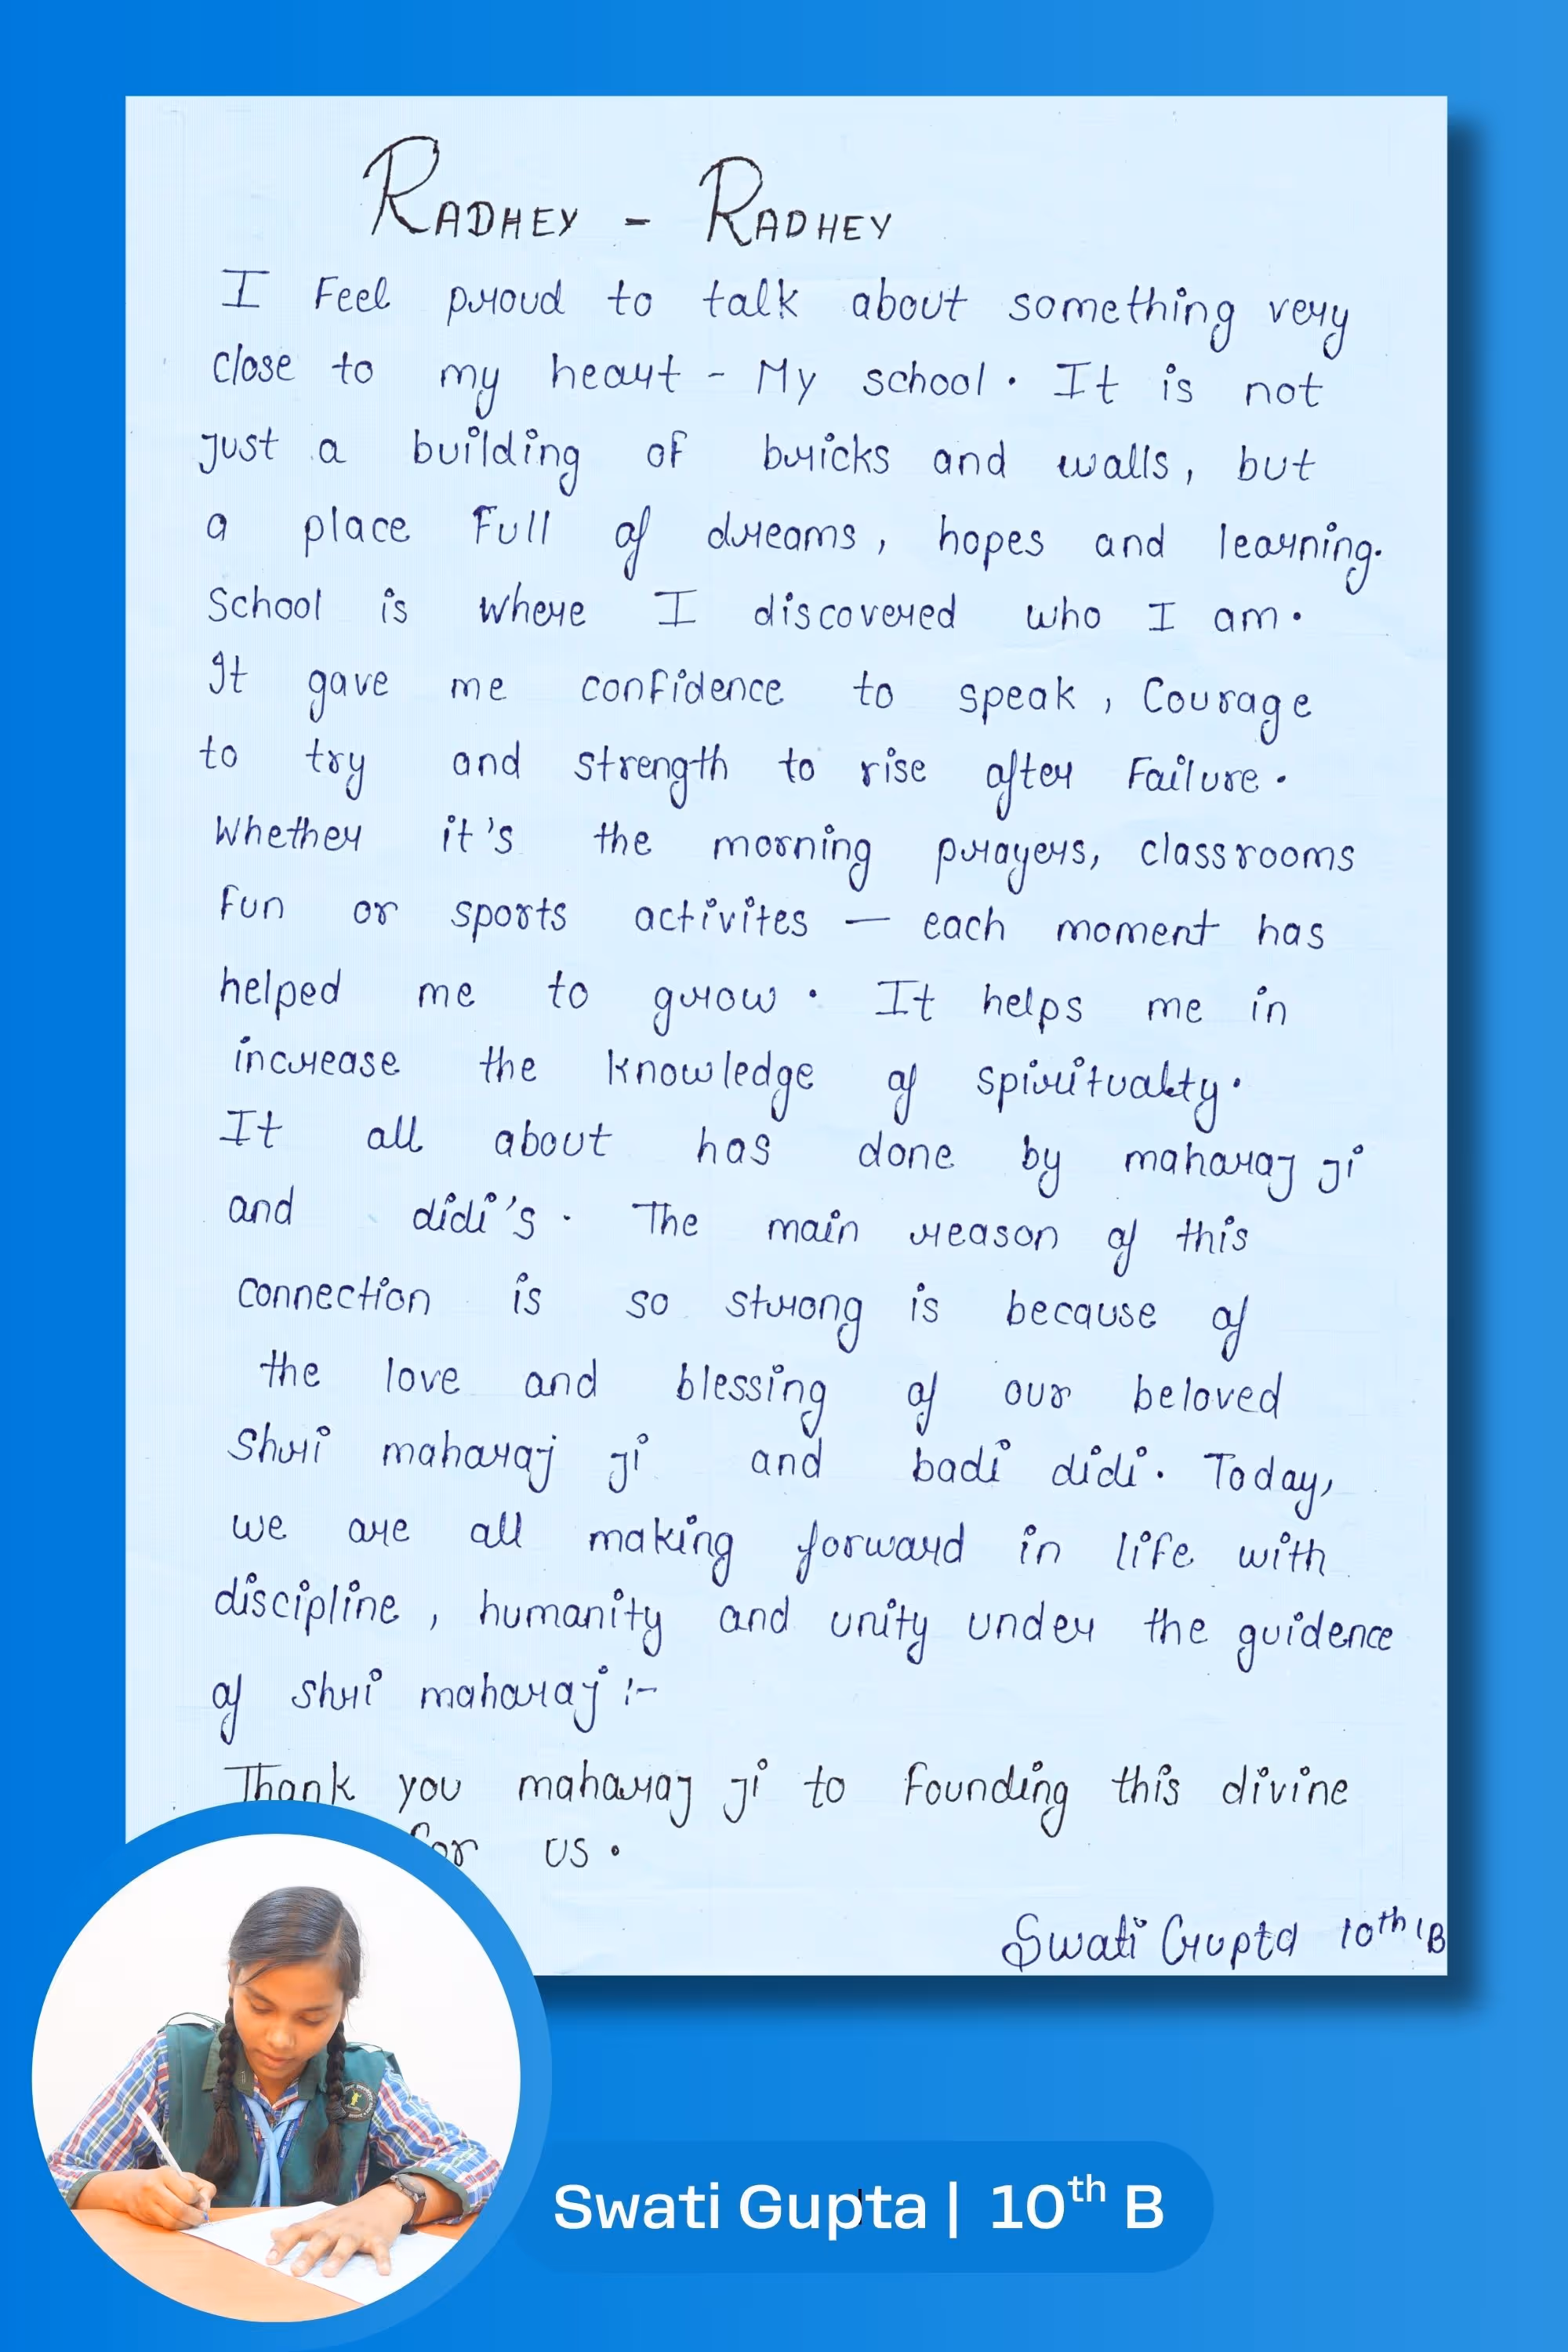 RADHEY - RADHEY
I Feel proud to talk about something very
close to my heart - My school. It is not
just a building of bricks and walls, but
a place Full of dreams, hopes and learning.
School is where I discovered who I am.
It gave me confidence to speak, Courage
to try and strength to rise after Failure.
Whether it's the morning prayers, classrooms
fun or sports activites — each moment has
helped me to grow. It helps me in
increase the knowledge of spiritualty.
It all about has done by maharaj ji
and didi's. The main reason of this
connection is so strong is because of
the love and blessing of our beloved
Shri maharaj ji and badi didi. Today,
we are all making forward in life with
discipline, humanity and unity under the guidence
of Shri maharaj :-
Thank you maharaj ji to Founding this divine
for us.
Swati Gupta 10th B
Swati Gupta | 10th B